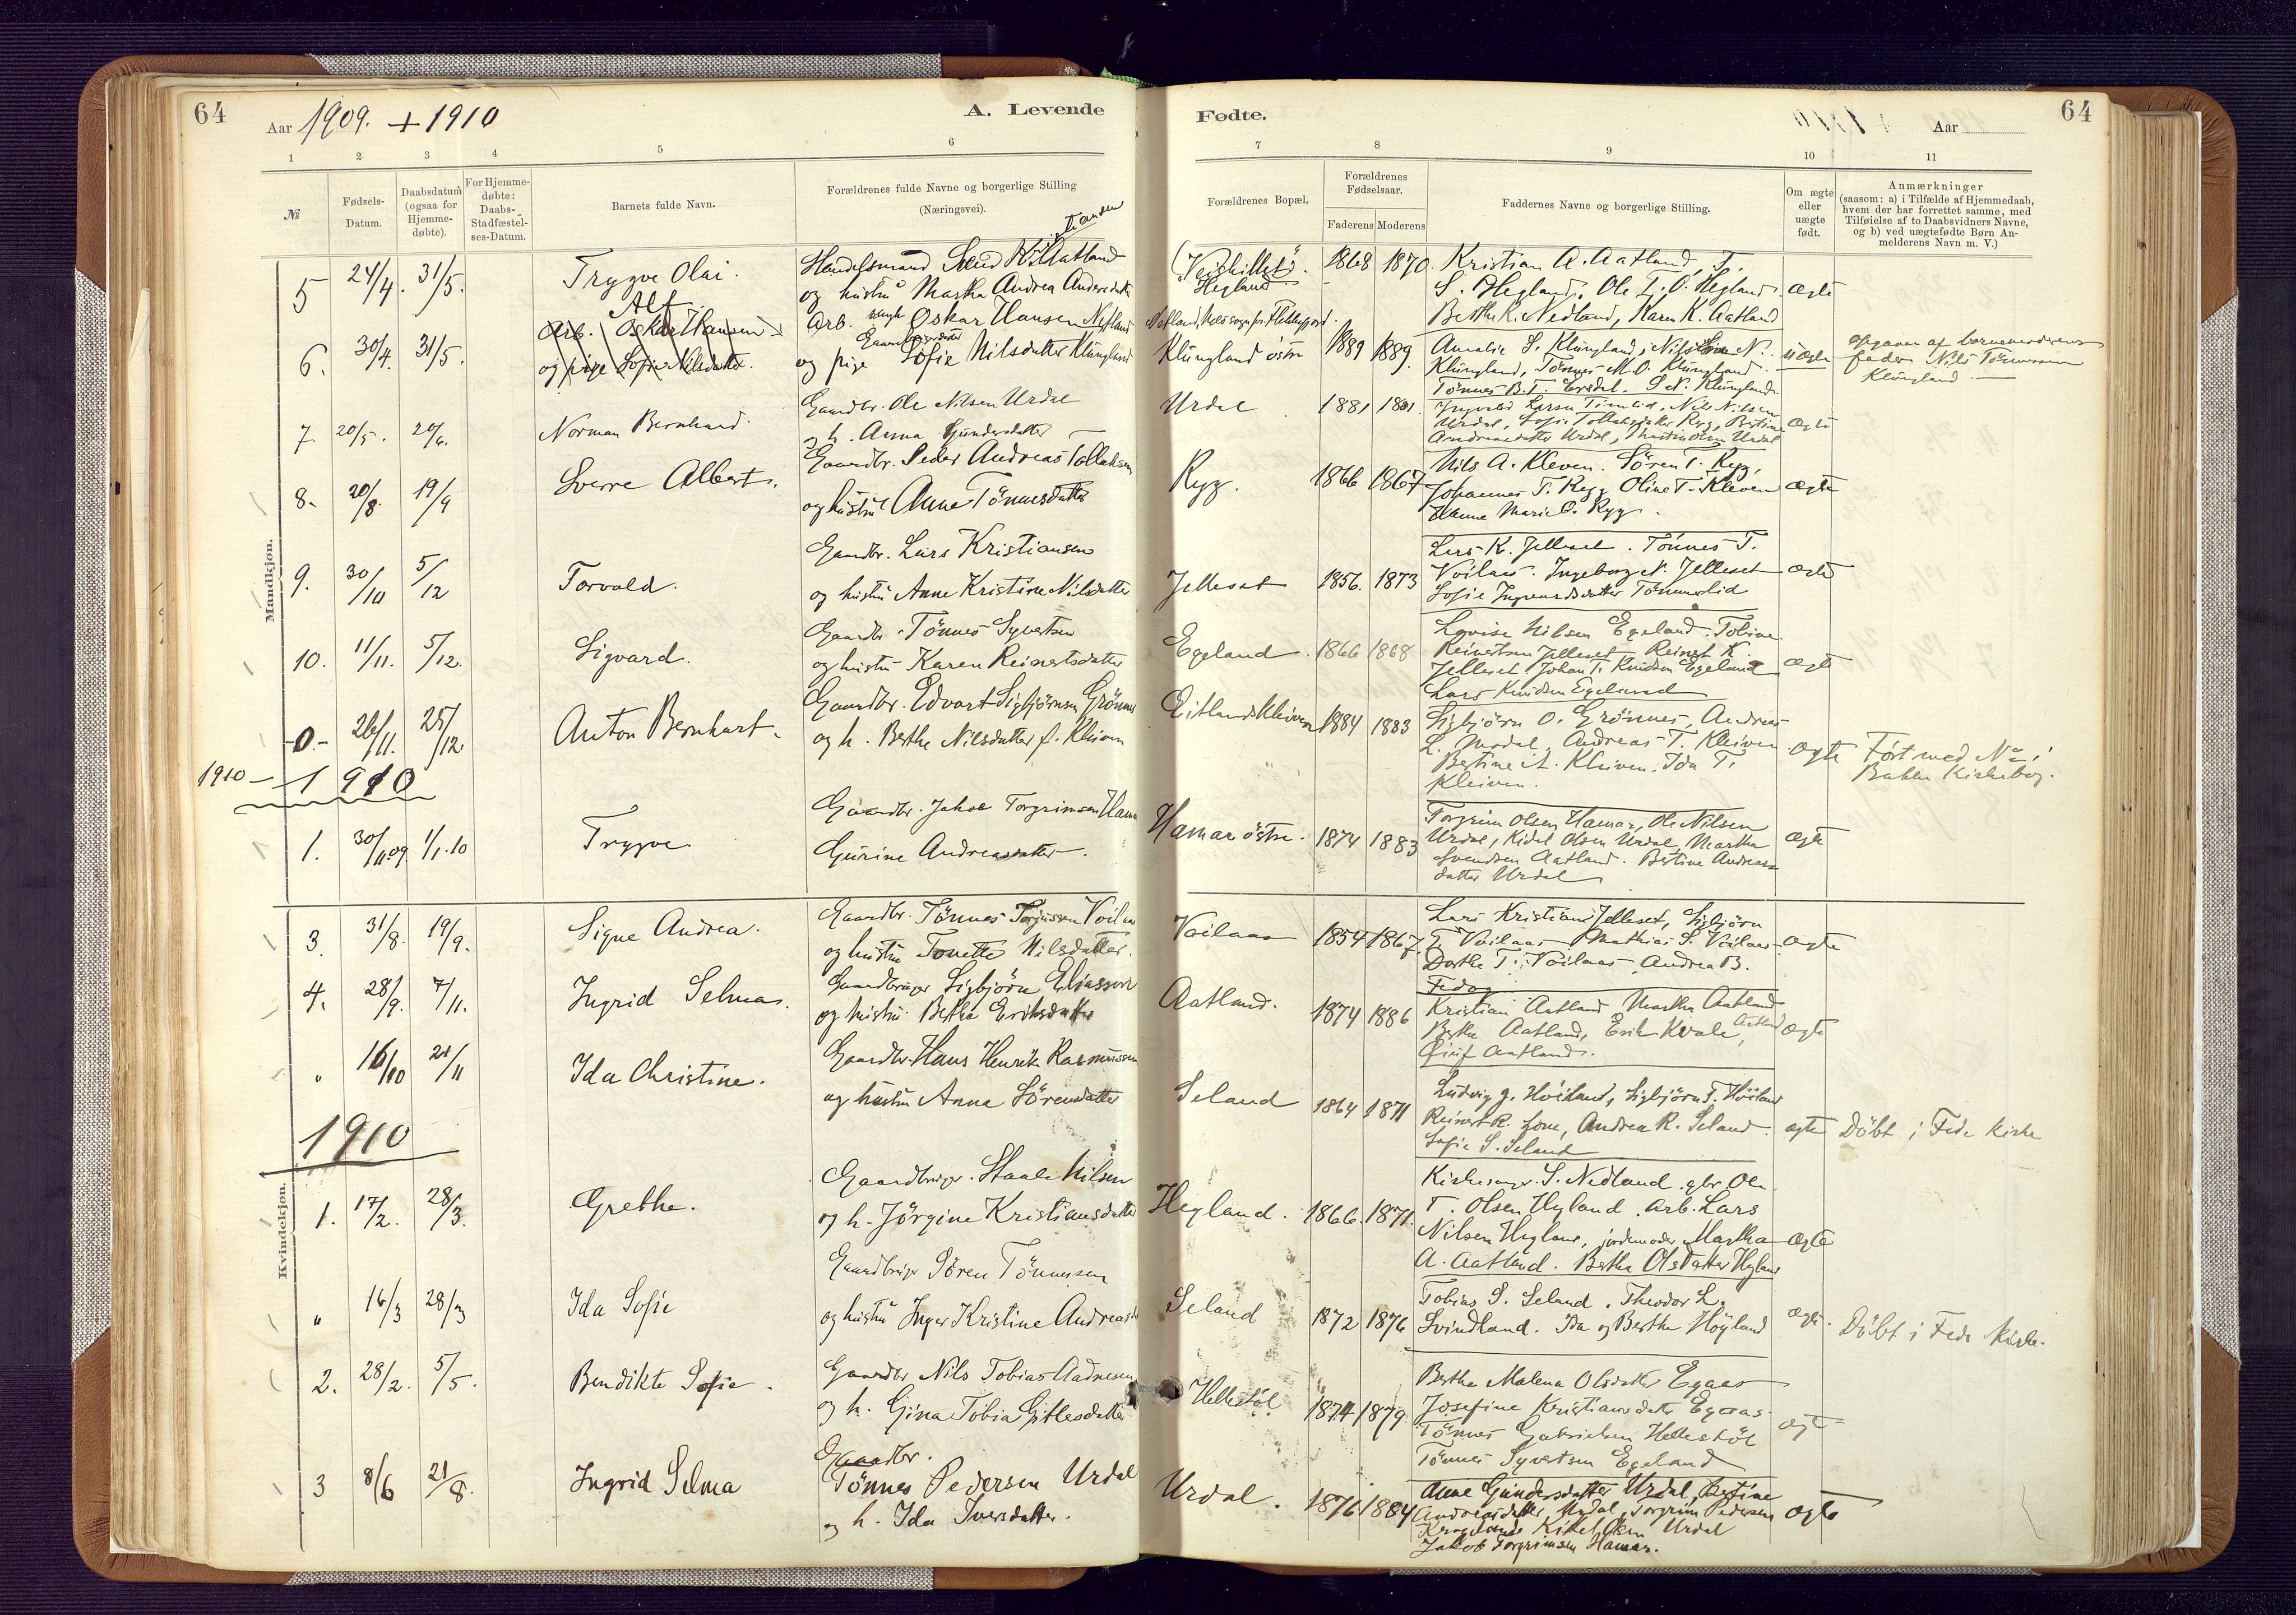 64
Aar 1909. + 1910
A. Levende
1 2 3 4 5 6
№
Fødsels-
Datum.
Daabsdatum
(ogsaa for
Hjemme-
døbte).
For Hjemme-
døbte:
Daabs-
Stadfæstel-
ses-Datum.
Barnets fulde Navn.
Forældrenes fulde Navne og borgerlige Stilling
(Næringsvei).
Mandkjøn.
5 24/4. 31/5. Trygve Olai.
Handelsmand
og hustru Martha Andrea
6. 30/4. 31/5. Alf
Arb. Oskar Hansen
og pige Sofie Nilsdatter.
Arb. Oskar Hansen
og pige Sofie Nilsdatter Klungland
7. 20/5. 20/6. Norman Bernhard.
Gaardbr. Ole Nilsen Urdal
og h. Anna Gundersdatter
8. 20/8. 19/9 Sverre Albert.
Gaardbr. Peder Andreas Tollaksen
og hustru Anne Tönnesdatter
9. 30/10 5/12 Torvald.
Gaardbr. Lars Kristiansen
og hustru Anne Kristine Nilsdatter
10. 11/11. 5/12. Sigvard.
Gaardbr. Tönnes Syvertsen
og hustru Karen Reinertsdatter
-0.- 26/11. 25/12 Anton Bernhart.
Gaardbr. Edvart Sigbjörnsen Grönnes
og h. Berthe Nilsdatter f. Kleiven
1910 — 1910
1. 30/11 09 1/1.10 Trygve
Gaardbr. Jakob Torgrimsen Hamar
Gurine Andreasdatter.
3. 31/8. 19/9. Signe Andrea.
Gaardbr. Tönnes Torjussen Voilaas
og hustru Tonette Nilsdatter.
4. 28/9. 7/11. Ingrid Selma.
Gaardbruger Sigbjörn Eliassen
og hustru Bertha Eriksdatter
" 16/10 21/11 Ida Christine.
Gaardbr. Hans Henrik Rasmussen
og hustru Anna Sörensdatter
1910
Kvindekjøn.
1. 17/2. 28/3. Grethe.
Gaardbruger. Staale Nilsen
og h. Jörgine Kristiansdatter
" 16/3 28/3 Ida Sofie
Gaardbruger Sören Tönnesen
og hustru Inger Kristine
2. 28/2. 5/5. Bendikte Sofie.
Gaardbr Nils Tobias Aadnesen
og h. Gina Tobia Gitlesdatter
3 8/6 21/8. Ingrid Selma
Gaardbr.
Tönnes Pedersen Urdal
og h. Ida Iversdatter.
Fødte.
Aar
64
7 8 9 10 11
Forældrenes Bopæl.
Forældrenes
Fødselsaar.
Faderens Moderens
Faddernes Navne og borgerlige Stilling.
Om ægte
eller
uægte
født.
Anmærkninger
(saasom: a) i Tilfælde af Hjemmedaab,
hvem der har forrettet samme, med
Tilføielse af to Daabsvidners Navne,
og b) ved uægtefødte Børn An-
melderens Navn m. V.)
Hegland
1868 1870. Kristian A. Aatland, T.
S. Hegland, Ole T. O. Hegland
Berthe K. Nedland, Karen K. Aatland
ægte
Klungland östre 1889 1889.
Amalie S. Klungland,
Klungland, Tönnes M. O. Klungland
Tönnes B. T. S. N. Klungland
uægte
opgaven af barnemoderens
fader Nils Tönnessen
Klungland.
Urdal 1881 1881.
Ingvald Larsen Nils Nilsen
Urdal, Sofie Tollaksdatter Ryg, Bertine
Andreasdatter Urdal, Urdal
ægte
Ryg. 1866 1867
Nils A. Kleven. Sören T. Ryg,
Johannes T. Ryg Oline T. Kleven
Hanne Marie O. Ryg.
ægte
Jelleset 1856. 1873
Lars K. Jelleset. Tönnes T.
Voilaas. Ingeborg N. Jelleset
Sofie
ægte
Egeland. 1866 1868
Lovise Nilsen Egeland. Tobine
Reinertsen Jelleset Reinert K.
Jelleset Johan T. Knudsen Egeland
Lars Knudsen Egeland
ægte
Eitlandskleiven 1884 1883
Sigbjörn O. Grönnes, Andreas
L. Modal, Andreas T. Kleiven
Bertine A. Kleiven. Ida T.
Kleiven.
ægte
Fört med No i
Bakke Kirkebog.
Hamar östre. 1874 1883
Torgrim Olsen Hamar, Ole Nilsen
Urdal, Kidel Olsen Urdal, Martha
Svendsen Aatland. Bertine Andreas-
datter Urdal
ægte
Voilaas 1854 1867.
Lars Kristians Jelleset, Sigbjörn
T. Voilaas Mathias S. Voilaas
Dorthe T. Voilaas Andrea B.
Fedog
ægte
Aatland. 1874 1886
Kristian Aatland Martha Aatland
Berthe Aatland, Erik Kvale,
Aatland.
ægte
Seland 1864 1871
Ludvig G. Höiland, Sigbjörn T. Höiland
Reinert R. Lone, Andrea R. Seland
Sofie S. Seland
ægte
Döbt i Feda kirke
Hegland. 1866. 1871.
Kirkesanger S. Nedland. gbr. Ole
T. Olsen Hegland. Arb. Lars
Nilsen Hegland, jordemoder Martha
A. Aatland. Bertha Olsdatter Hegland
ægte
Seland 1872 1876
Tobias S. Seland. Theodor L.
Svindland. Ida og Berthe Höyland
ægte.
Döbt i Feda kirke.
Hellestöl 1874 1879
Berthe Malena Olsdatter Egaas
Josefine Kristiansdatter Egaas.
Tönnes Gabrielsen Hellestöl
Tönnes Syvertsen Egeland
ægte
Urdal. 1876 1884
Anne Gundersdatter Urdal, Bertine
Andreasdatter Urdal, Torgrim Pedersen
Kidel Olsen Urdal
Jakob Torgrimsen Hamar.
ægte